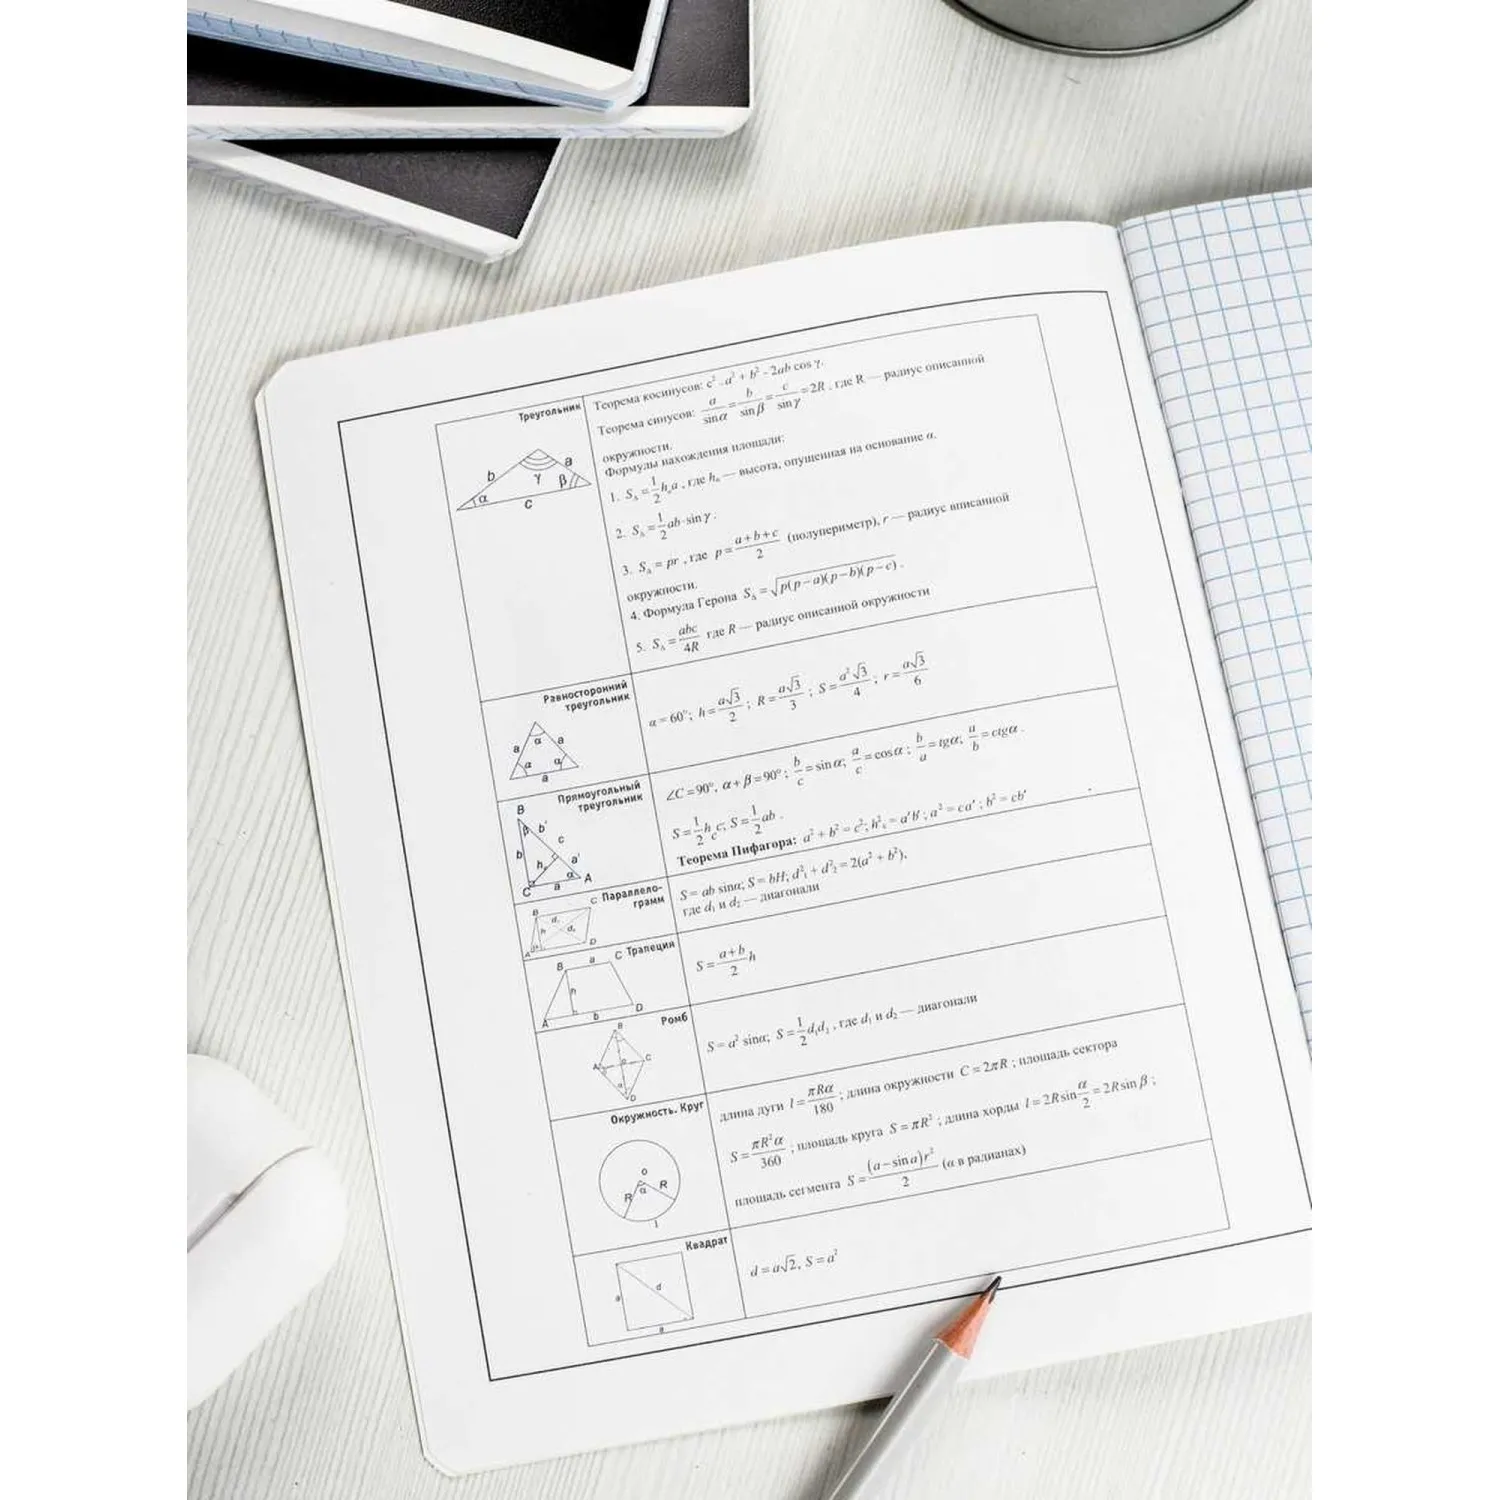 Треугольник
b a γ α β c
Теорема косинусов: c² - a² + b² - 2ab cos γ.
Теорема синусов: a/sinα = b/sinβ = c/sinγ = 2R, где R — радиус описанной
окружности.
Формулы нахождения площади:
1. S△ = 1/2 hₐa, где hₐ — высота, опущенная на основание α.
2. S△ = 1/2 ab·sin γ.
3. S△ = pr, где p = (a+b+c)/2 (полупериметр), r — радиус вписанной
окружности.
4. Формула Герона S△ = √p(p−a)(p−b)(p−c).
5. S△ = abc/4R где R — радиус описанной окружности
Равносторонний
треугольник
a α a α α a
α = 60°; h = a√3/2; R = a√3/3; S = a²√3/4; r = a√3/6
Прямоугольный
треугольник
B β b' c b h a' α C a A
∠C = 90°, α + β = 90°; b/c = sin α; a/c = cos α; b/a = tgα; a/b = ctgα.
S = 1/2 h_c c; S = 1/2 ab.
Теорема Пифагора: a² + b² = c²; h²_c = a'b'; a² = ca'; b² = cb'
Параллело-
грамм
B C d₁ h d₂ A D
S = ab sinα; S = bH; d²₁ + d²₂ = 2(a² + b²),
где d₁ и d₂ — диагонали
Трапеция
B a C h A b D
S = (a+b)/2 h
Ромб
B A C D
S = a² sinα; S = 1/2 d₁d₂, где d₁ и d₂ — диагонали
Окружность. Круг
o R α R l
длина дуги l = πRα/180; длина окружности C = 2πR; площадь сектора
S = πR²α/360; площадь круга S = πR²; длина хорды l = 2R sin α/2 = 2R sin β;
площадь сегмента S = (a − sin a)r²/2 (α в радианах)
Квадрат
a d a
d = a√2, S = a²